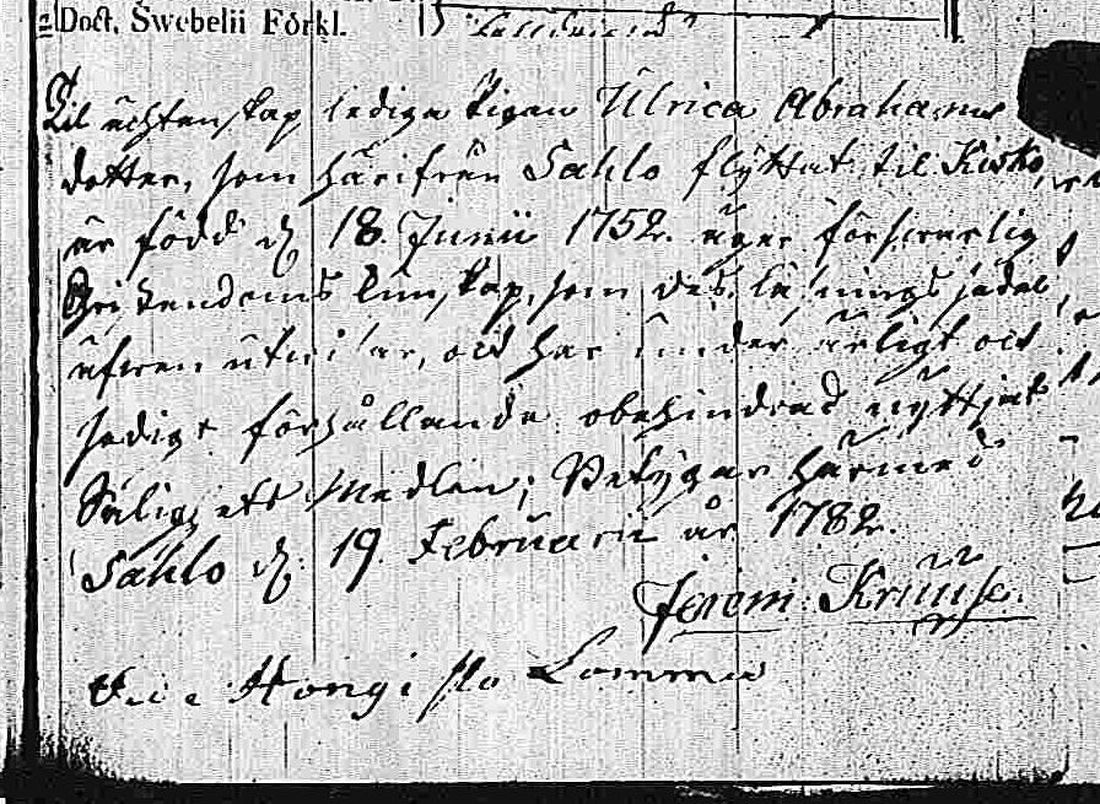 Doct. Swebelii Förkl.
Til ächtenskap lediga Pigan Ulrica Abrahams
dotter, som härifrån Sahlo flyttat til Kisko,
är född d. 18. Junii 1752. äger försvarlig
Christendoms kunskap, som des läsnings sedel
utvisar, och har under ärligt och
sedigt förhållande obehindrad nyttjat
Salighets Medlen; Betygar härmed
Sahlo d. 19. Februarii år 1782.
Jerem: Kruuse.
Hongisto Lommu